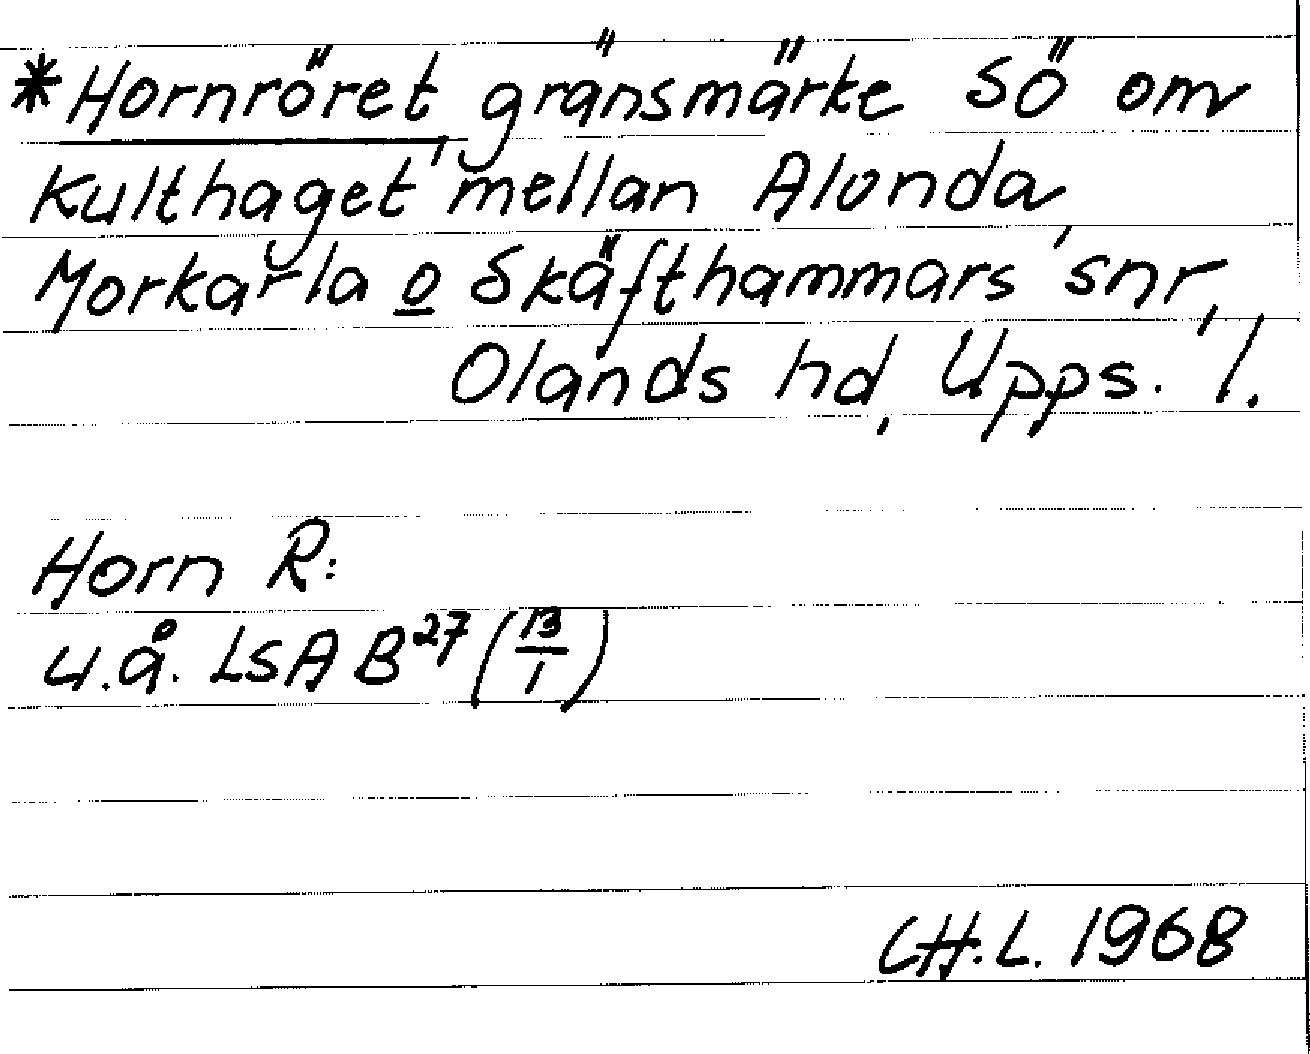 *Hornröret, gränsmärke SÖ om
Kulthaget mellan Alunda,
Morkarla o Skäfthammars snr,
Olands hd, Upps. l.
Horn R:
u.å. LSA B27 (13/1)
CH.L. 1968